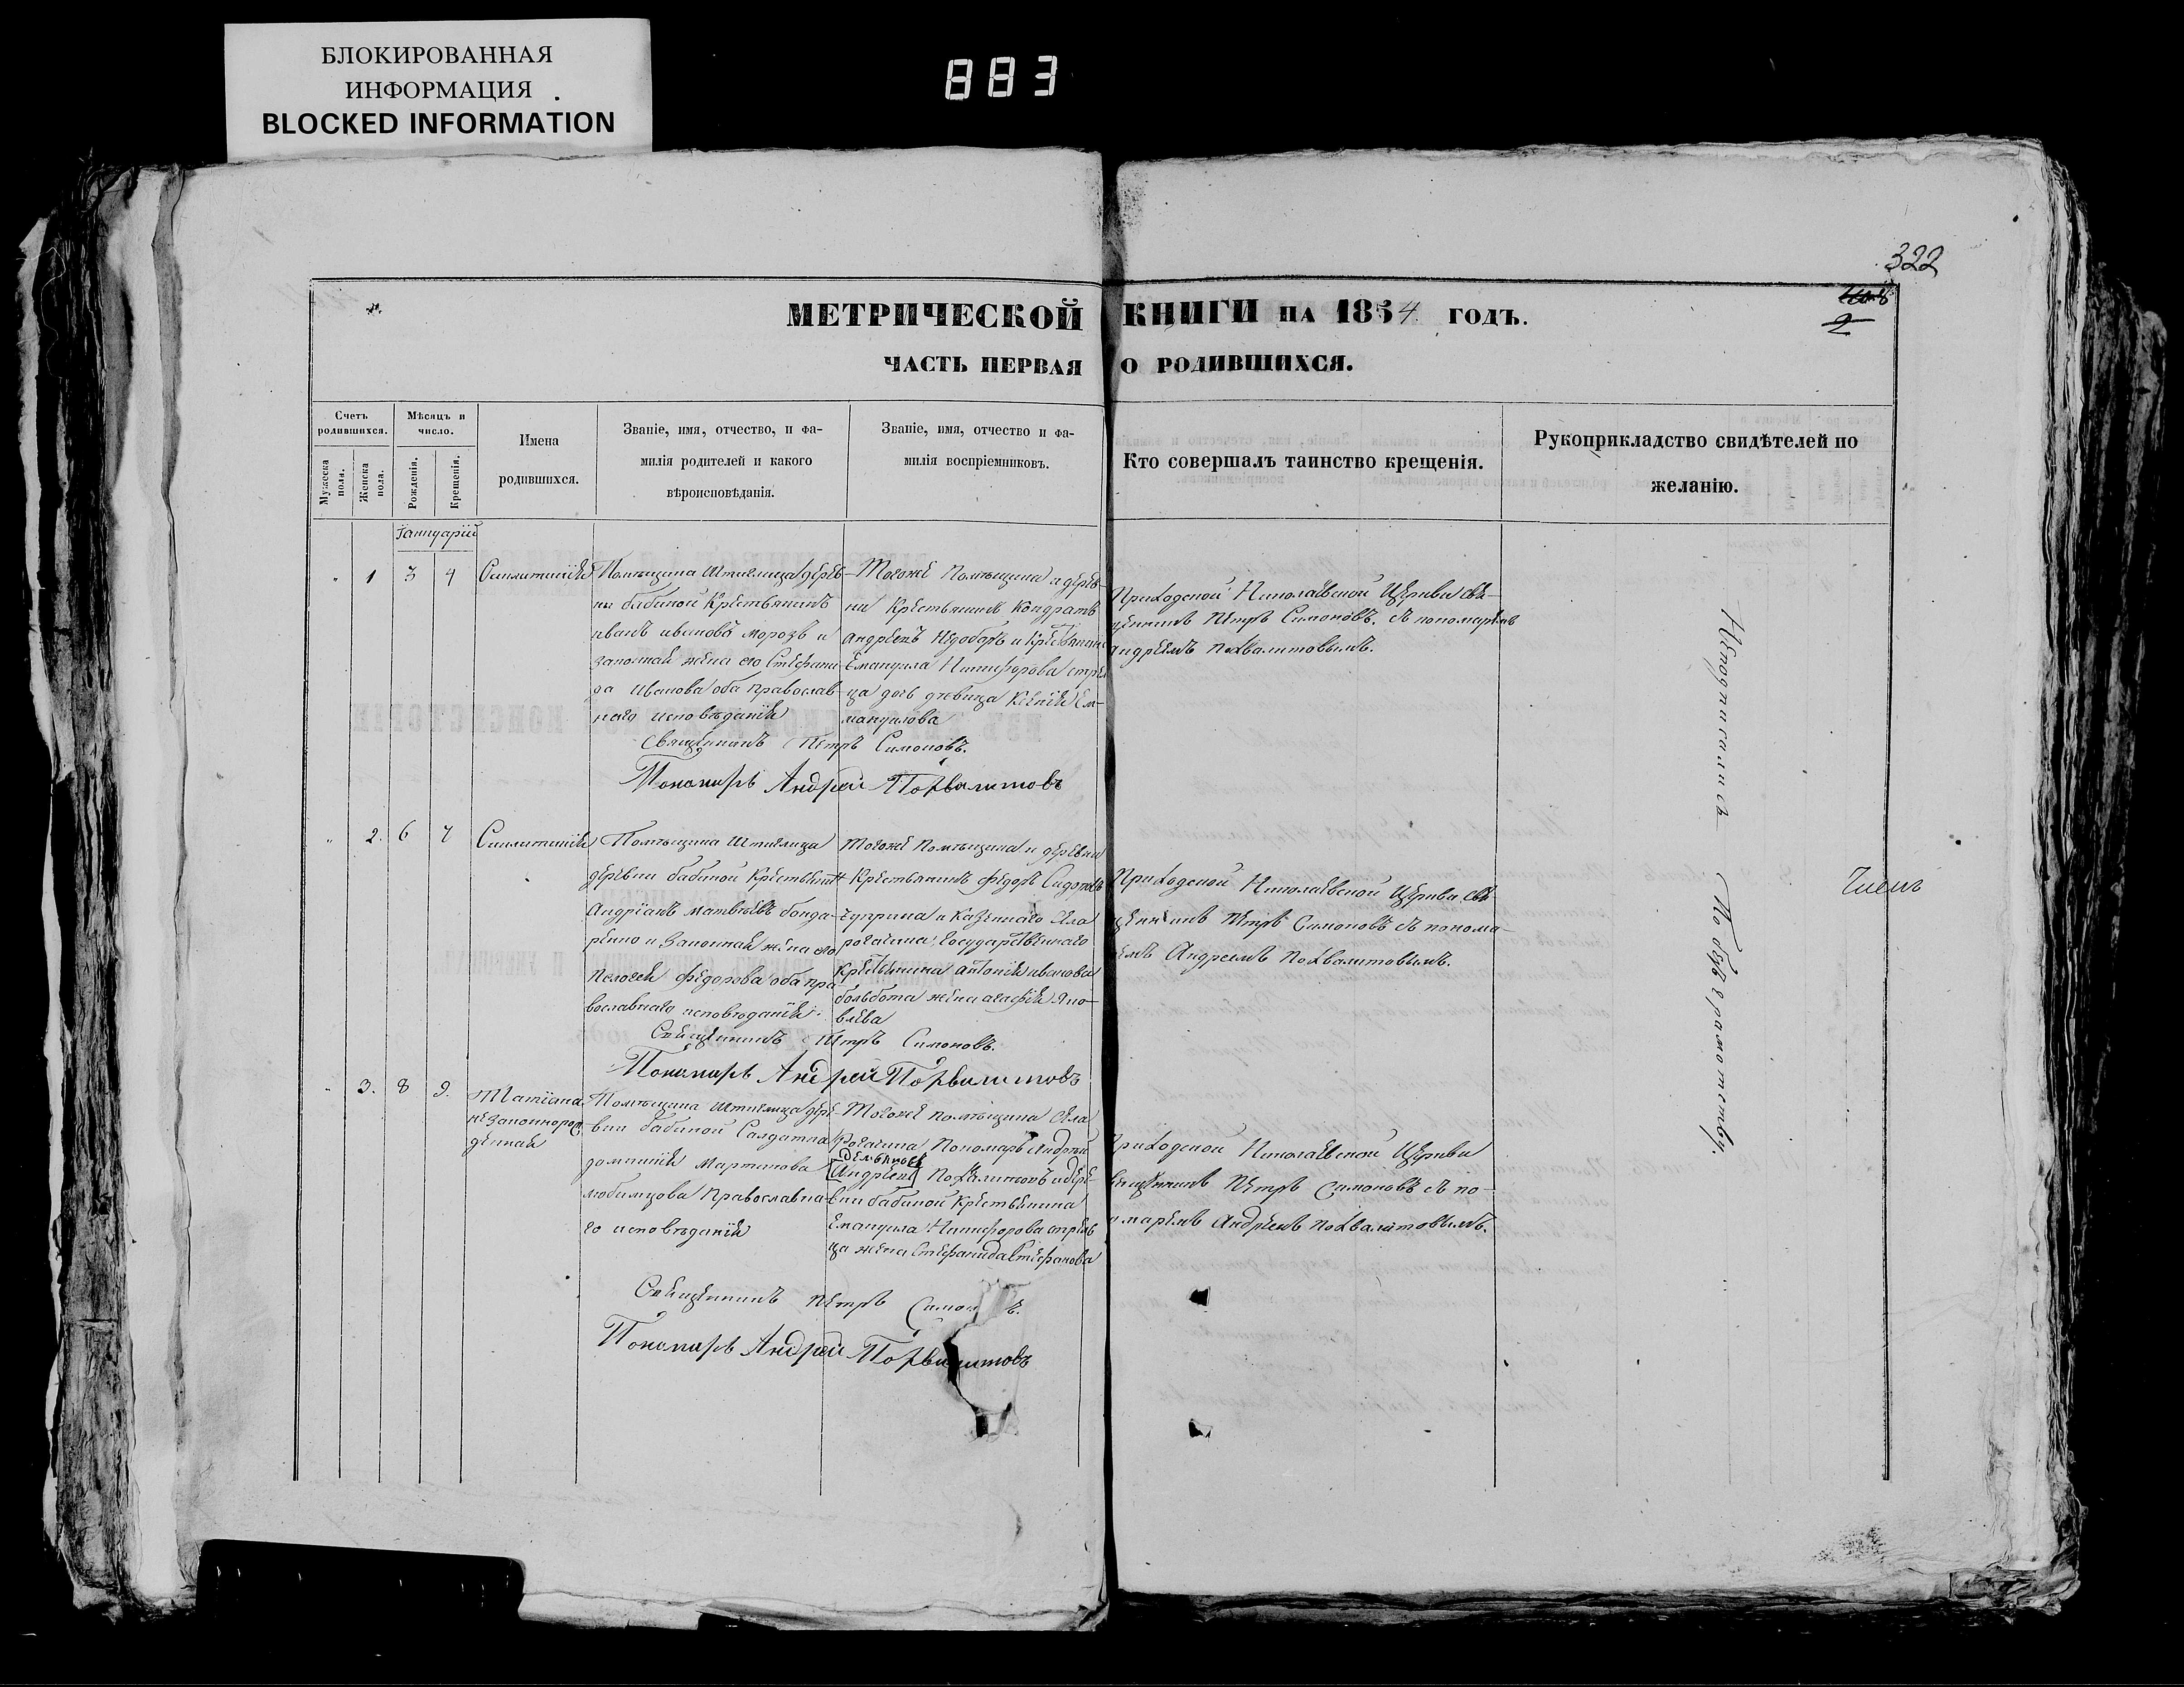 БЛОКИРОВАННАЯ
ИНФОРМАЦИЯ
BLOCKED INFORMATION
883
322
2
МЕТРИЧЕСКОЙ КНИГИ НА 1854 ГОДЪ.
ЧАСТЬ ПЕРВАЯ О РОДИВШИХСЯ.
Счетъ родившихся.
Мужеска пола.
Женска пола.
Мѣсяцъ и число.
Рожденія.
Крещенія.
Имена родившихся.
Званіе, имя, отчество, и фамилія родителей и какого вѣроисповѣданія.
Званіе, имя, отчество и фамилія воспріемниковъ.
Кто совершалъ таинство крещенія.
Рукоприкладство свидѣтелей по желанію.
Іаннуарій
1 3 4
Синклитикія
Помѣщика Штиглица дерев-
ни бабиной Крестьянинъ
иванъ ивановъ морозъ и
законная жена его Стефани-
да Иванова оба православ-
наго исповѣданія
Тогоже Помѣщика и дерев-
ни Крестьянинъ Кондратъ
андреевъ и Крестьянина
Емануила Никифорова стрел
ца дочь девица Ксенія Ем-
мануилова
Приходской Николаевской Церкви свя-
щенникъ Петръ Симоновъ съ пономаремъ
андреемъ похвалитовымъ.
Священникъ Петръ Симоновъ.
Пономарь Андрей Похвалитовъ
2. 6 7
Синклитикія
Помѣщика Штиглица
деревни бабиной Крестьянинъ
Андріанъ матвѣевъ бонда-
ренко и Законная жена его
Пелагея федорова оба пра
вославнаго исповѣданія
Тогоже Помѣщика и деревни
Крестьянинъ федоръ Сидоровъ
чуприна и Казеннаго села
рогачика государственнаго
Крестьянина антонія иванова
жена агафія яко-
влева
Приходской Николаевской Церкви свя
щенникъ Петръ Симоновъ съ понома-
емъ Андреемъ похвалитовымъ.
Священникъ Петръ Симоновъ.
Пономарь Андрей Похвалитовъ
3. 8 9.
Татіана
незаконнорож
денная
Помѣщика Штиглица дере-
вни бабиной Салдатка
домникія Мартинова
любимцова Православна-
го исповѣданія
Тогоже помѣщика села
рогачика Пономарь андрей
Демьяновъ
Андреевъ Похвалитовъ и дере-
вни бабиной Крестьянина
Емануила Никифорова стрель
ца жена Стефанида Стефанова
Приходской Николаевской Церкви
вященникъ Петръ Симоновъ съ по-
омаремъ андреемъ похвалитовымъ.
Священникъ Петръ
Пономарь Андрей Похвалитовъ
Неподписались По безграмотству.
Членъ